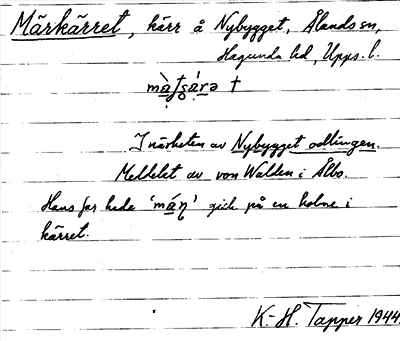 Märkärret, kärr å Nybygget, Ålands sn,
Hagunda hd, Upps. l.
†
I närheten av Nybygget odlingen.
Meddelat av von Walden i Ålbo.
Hans far hade ' ' gick på en holme i
kärret.
K.-H. Tapper 1944.